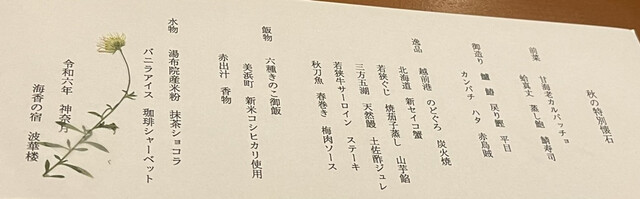 秋の特別懐石
前菜 甘海老カルパッチョ
蛤真丈 蒸し鮑 鯖寿司
御造り 鱸 鰆 戻り鰹 平目
カンパチ ハタ 赤烏賊
逸品 越前港 のどぐろ 炭火焼
北海道 新セイコ蟹
若狭ぐじ 焼茄子蒸し 山芋餡
三方五湖 天然鰻 土佐酢ジュレ
若狭牛サーロイン ステーキ
秋刀魚 春巻き 梅肉ソース
飯物 六種きのこ御飯
美浜町 新米コシヒカリ使用
赤出汁 香物
水物 湯布院産米粉 抹茶ショコラ
バニラアイス 珈琲シャーベット
令和六年 神奈月
海香の宿 波華楼